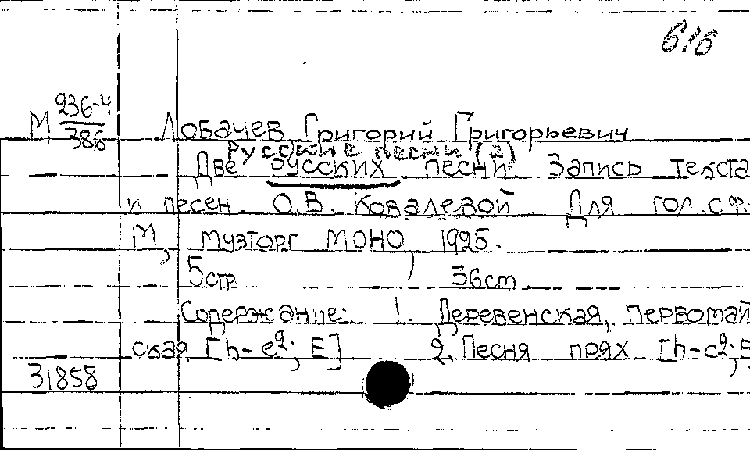 616
М 236-4
386
Лобачев Григорий Григорьевич
Русские песни (2)
Две русских песни. Запись текста
и песен О.В. Ковалевой Для гол. с ф.
М, Музторг МОНО, 1925.
5 стр 36 cm
Содержание: 1. Деревенская, первомай
ская [h-e²; E] 2. Песня прях [h-c²;
31858